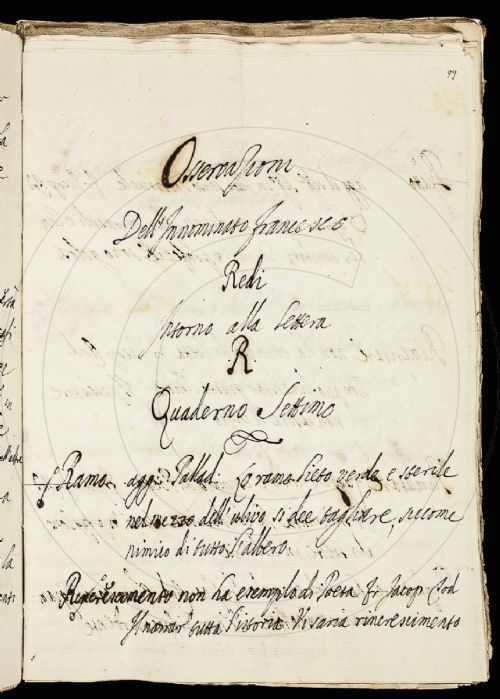 99
Osservazioni
Dell'Innominato francesco
Redi
Intorno alla Lettera
R
Quaderno Settimo
Ramo. agg. Pallad. Lo ramo lieto verde e sterile
nel mezzo dell'ulivo si dee tagliare, siccome
nimico di tutto l'albero.
non ha esempio di Poeta fr Jacop. Tod.
In narrar tutta l'istoria Vi saria rincrescimento